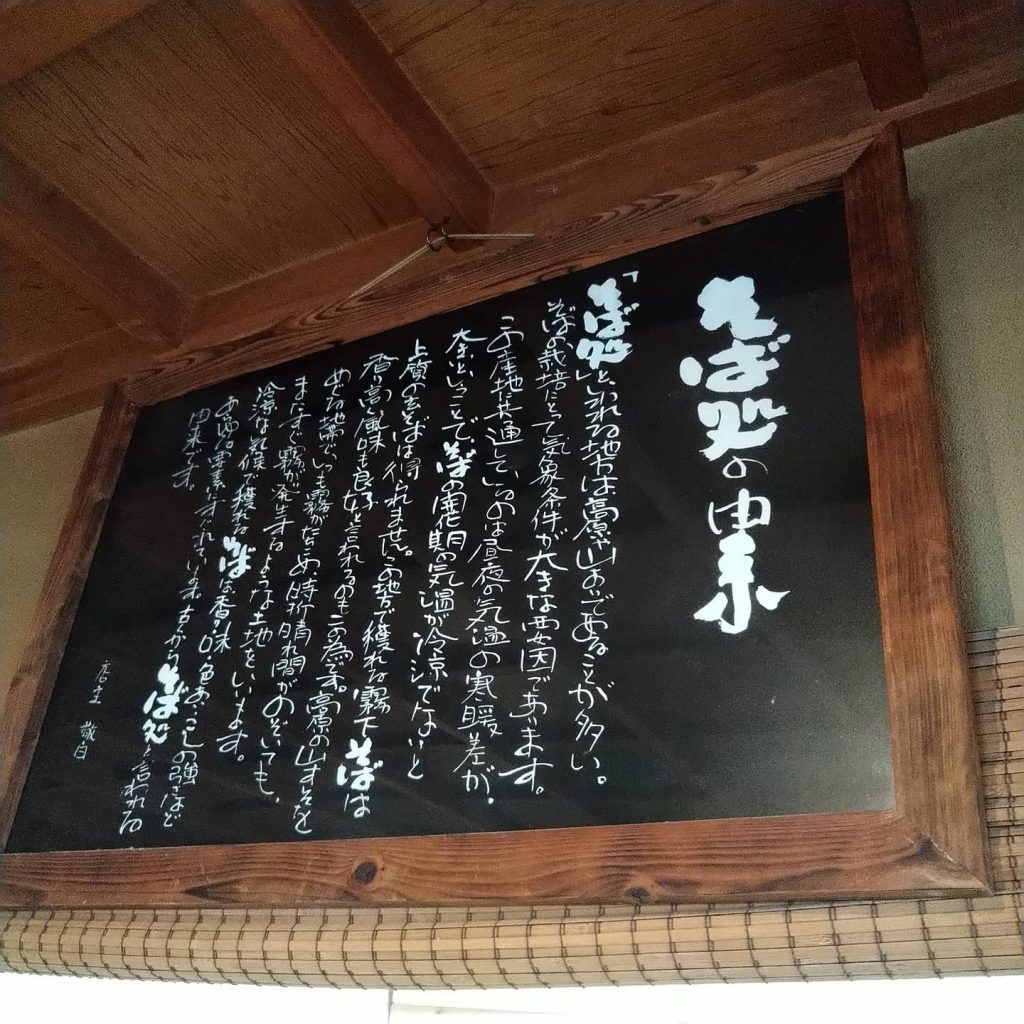 そば処の由来
「そば処」といわれる地方は高原や山あいであることが多い。
そばの栽培にとって気象条件が大きな要因であります。
この産地に共通しているのは昼夜の気温の寒暖差が、
大きいということで、そばの開花期の気温が冷涼でないと
上質のそばは得られません。この地方で穫れる霧下そばは
香り高く風味も良好と言われるのもこの為です。高原の山すそを
めぐる地帯でいつも霧がたちこめ時折晴れ間がのぞいても、
またすぐ霧が発生するような土地をいいます。
冷涼な気候で穫れるそばは香り味色あいこしの強さなど
あらゆる要素にすぐれています。古からそば処と言われる
由来です。
店主 敬白